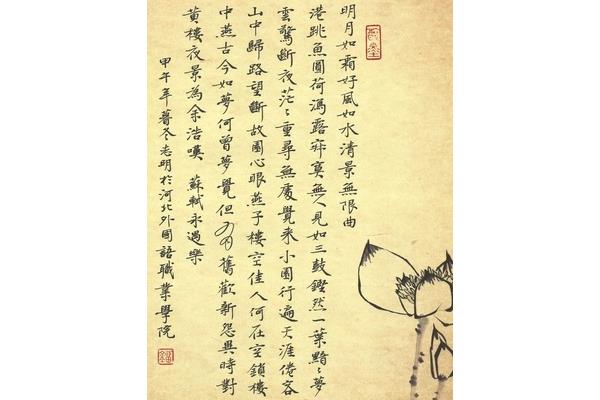 明月如霜好風如水清景無限曲
港跳魚圓荷瀉露寂寞無人見如三鼓鏗然一葉黯〻夢
雲驚斷夜茫〻重尋無處覺來小園行遍天涯倦客
山中歸路望斷故園心眼燕子樓空佳人何在空鎖樓
中燕古今如夢何曾夢覺但有舊歡新怨異時對
黃樓夜景為余浩嘆 蘇軾永遇樂
甲午年暮冬志明於河北外國語職業學院